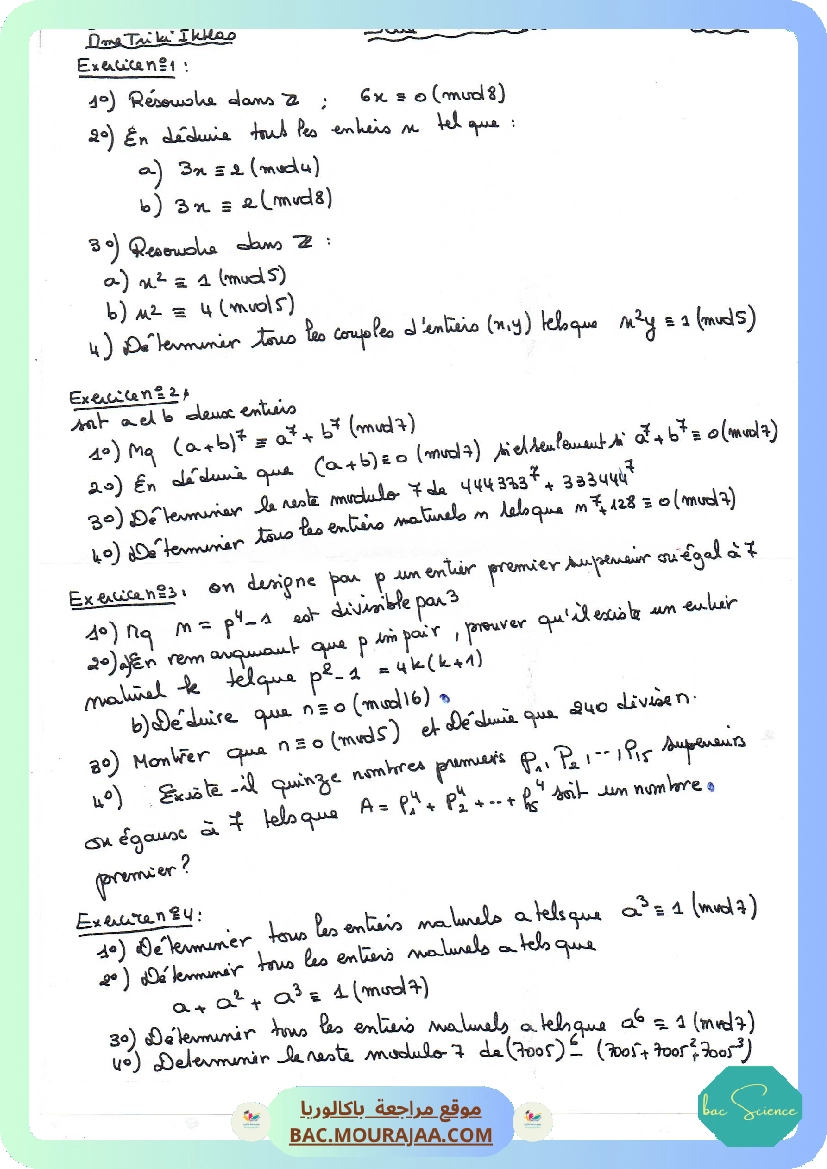 Dme Triki Ikhlas
Exercice n°1 :
1°) Résoudre dans Z ; 6x ≡ 0 (mod 8)
2°) En déduire tout les entiers x tel que :
a) 3x ≡ 2 (mod 4)
b) 3x ≡ 2 (mod 8)
3°) Resoudre dans Z :
a) x² ≡ 1 (mod 5)
b) x² ≡ 4 (mod 5)
4) Déterminer tous les couples d'entiers (x,y) tels que x²y ≡ 1 (mod 5)
Exercice n°2,
soit a et b deux entiers
1°) Mq (a+b)⁷ ≡ a⁷ + b⁷ (mod 7)
2°) En déduire que (a+b) ≡ 0 (mod 7) si et seulement si a⁷ + b⁷ ≡ 0 (mod 7)
3°) Déterminer le reste modulo 7 de 444333⁷ + 333444⁷
4°) Déterminer tous les entiers naturels n tels que n⁷ + 128 ≡ 0 (mod 7)
Exercice n°3. on designe par p un entier premier superieur ou égal à 7
1°) Mq n = p⁴ - 1 est divisible par 3
2°) a) En remarquant que p impair, prouver qu'il existe un entier
naturel k tel que p² - 1 = 4k(k+1)
b) Déduire que n ≡ 0 (mod 16).
3°) Montrer que n ≡ 0 (mod 5) et Déduire que 240 divise n.
4°) Existe-il quinze nombres premiers P₁, P₂, ..., P₁₅ superieurs
ou égaux à 7 tels que A = P₁⁴ + P₂⁴ + ... + P₁₅⁴ soit un nombre.
premier ?
Exercice n°4 :
1°) Déterminer tous les entiers naturels a tels que a³ ≡ 1 (mod 7)
2°) Déterminer tous les entiers naturels a tels que
a + a² + a³ ≡ 1 (mod 7)
3°) Déterminer tous les entiers naturels a tels que a⁶ ≡ 1 (mod 7)
4°) Determiner le reste modulo 7 de (7005)⁶ - (7005 + 7005² + 7005³)
موقع مراجعة باكالوريا
BAC.MOURAJAA.COM
bac Science